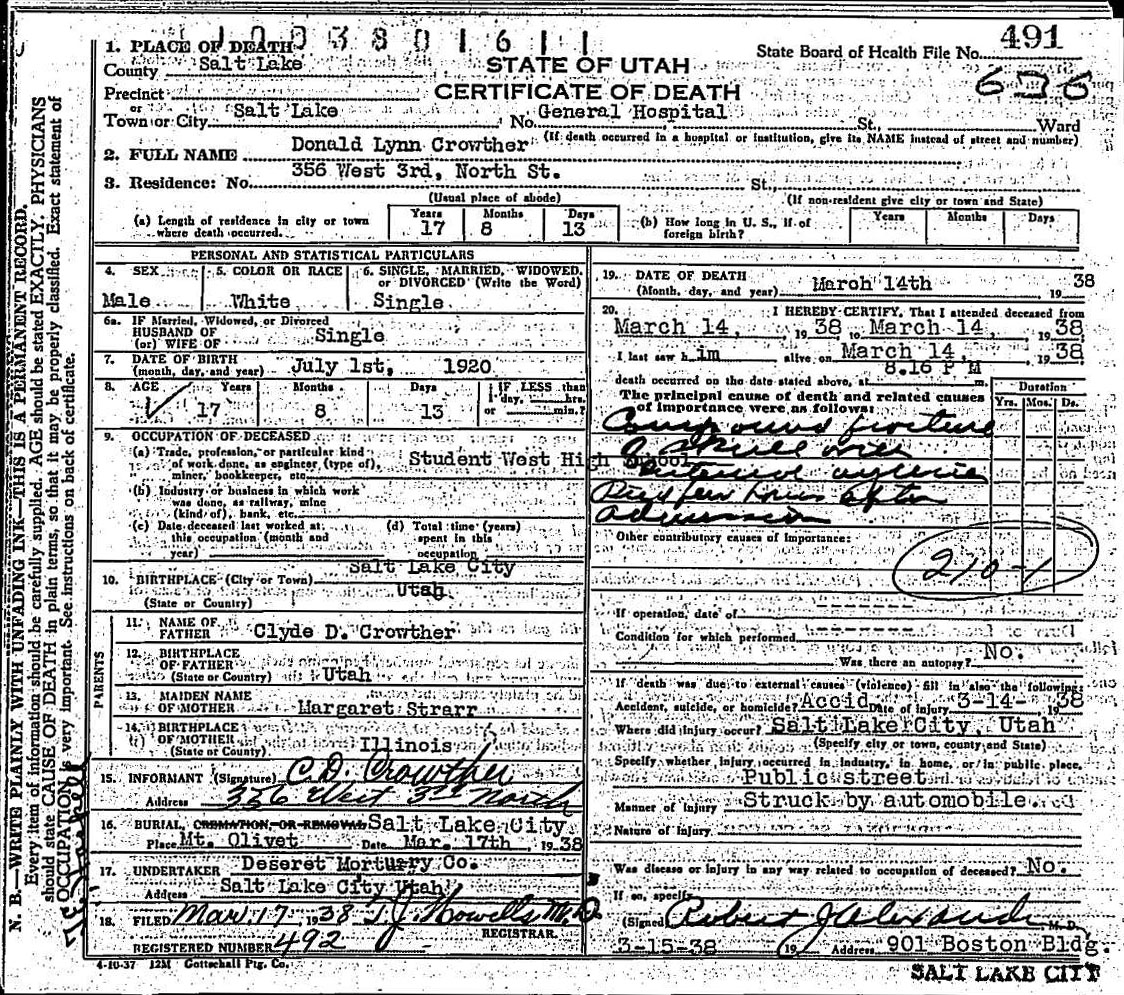 1003801611
1. PLACE OF DEATH
State Board of Health File No. 491
County Salt Lake
STATE OF UTAH
636
Precinct
CERTIFICATE OF DEATH
or
Town or City Salt Lake No. General Hospital St., Ward
(If death occurred in a hospital or institution, give its NAME instead of street and number)
2. FULL NAME Donald Lynn Crowther
3. Residence: No. 356 West 3rd, North St. St.,
(Usual place of abode) (If non-resident give city or town and State)
(a) Length of residence in city or town where death occurred. Years 17 Months 8 Days 13
(b) How long in U. S., if of foreign birth? Years Months Days
PERSONAL AND STATISTICAL PARTICULARS
4. SEX Male
5. COLOR OR RACE White
6. SINGLE, MARRIED, WIDOWED, or DIVORCED (Write the Word) Single
6a. IF Married, Widowed, or Divorced
HUSBAND OF
(or) WIFE OF Single
7. DATE OF BIRTH
(month, day, and year) July 1st, 1920
8. AGE Years 17 Months 8 Days 13 IF LESS than 1 day, hrs. or min.?
9. OCCUPATION OF DECEASED
(a) Trade, profession, or particular kind
of work done, as engineer, (type of),
miner, bookkeeper, etc. Student West High School
(b) Industry or business in which work
was done, as railway, mine
(kind of), bank, etc.
(c) Date deceased last worked at
this occupation (month and
year)
(d) Total time (years)
spent in this
occupation
10. BIRTHPLACE (City or Town) Salt Lake City
(State or Country) Utah
PARENTS
11. NAME OF
FATHER Clyde D. Crowther
12. BIRTHPLACE
OF FATHER
(State or Country) Utah
13. MAIDEN NAME
OF MOTHER Margaret Strarr
14. BIRTHPLACE
OF MOTHER
(State or County) Illinois
15. INFORMANT (Signature) C.D. Crowther
Address 356 West 3rd North
16. BURIAL, CREMATION, OR REMOVAL Salt Lake City
Place Mt. Olivet Date Mar. 17th 1938
17. UNDERTAKER Deseret Morturry Co.
Address Salt Lake City Utah
18. FILED Mar 17 1938 T.J. Howells M.D.
REGISTRAR.
REGISTERED NUMBER 492
4-10-37 12M Gottschall Ptg. Co.
19. DATE OF DEATH
(Month, day, and year) March 14th 1938
20. I HEREBY CERTIFY, That I attended deceased from
March 14, 1938 to March 14, 1938
I last saw him alive on March 14, 1938
death occurred on the date stated above, at 8.16 P M m.
The principal cause of death and related causes
of importance were as follows:
Duration
Yrs. Mos. Ds.
Compound fracture
of skull with
extensive
Died few hours after
admission
Other contributory causes of importance:
210-1
If operation, date of
Condition for which performed
Was there an autopsy? No.
If death was due to external causes (violence) fill in also the following:
Accident, suicide, or homicide? Accid Date of injury 3-14- 1938
Where did injury occur? Salt Lake City, Utah
(Specify city or town, county and State)
Specify whether injury occurred in industry, in home, or in public place.
Public street
Manner of injury Struck by automobile
Nature of injury
Was disease or injury in any way related to occupation of deceased? No.
If so, specify
(Signed) Robert J Alexander M. D.
3-15-38 19 Address 901 Boston Bldg.
SALT LAKE CITY
N. B.—WRITE PLAINLY WITH UNFADING INK—THIS IS A PERMANENT RECORD.
Every item of information should be carefully supplied. AGE should be stated EXACTLY. PHYSICIANS
should state CAUSE OF DEATH in plain terms, so that it may be properly classified. Exact statement of
OCCUPATION is very important. See instructions on back of certificate.